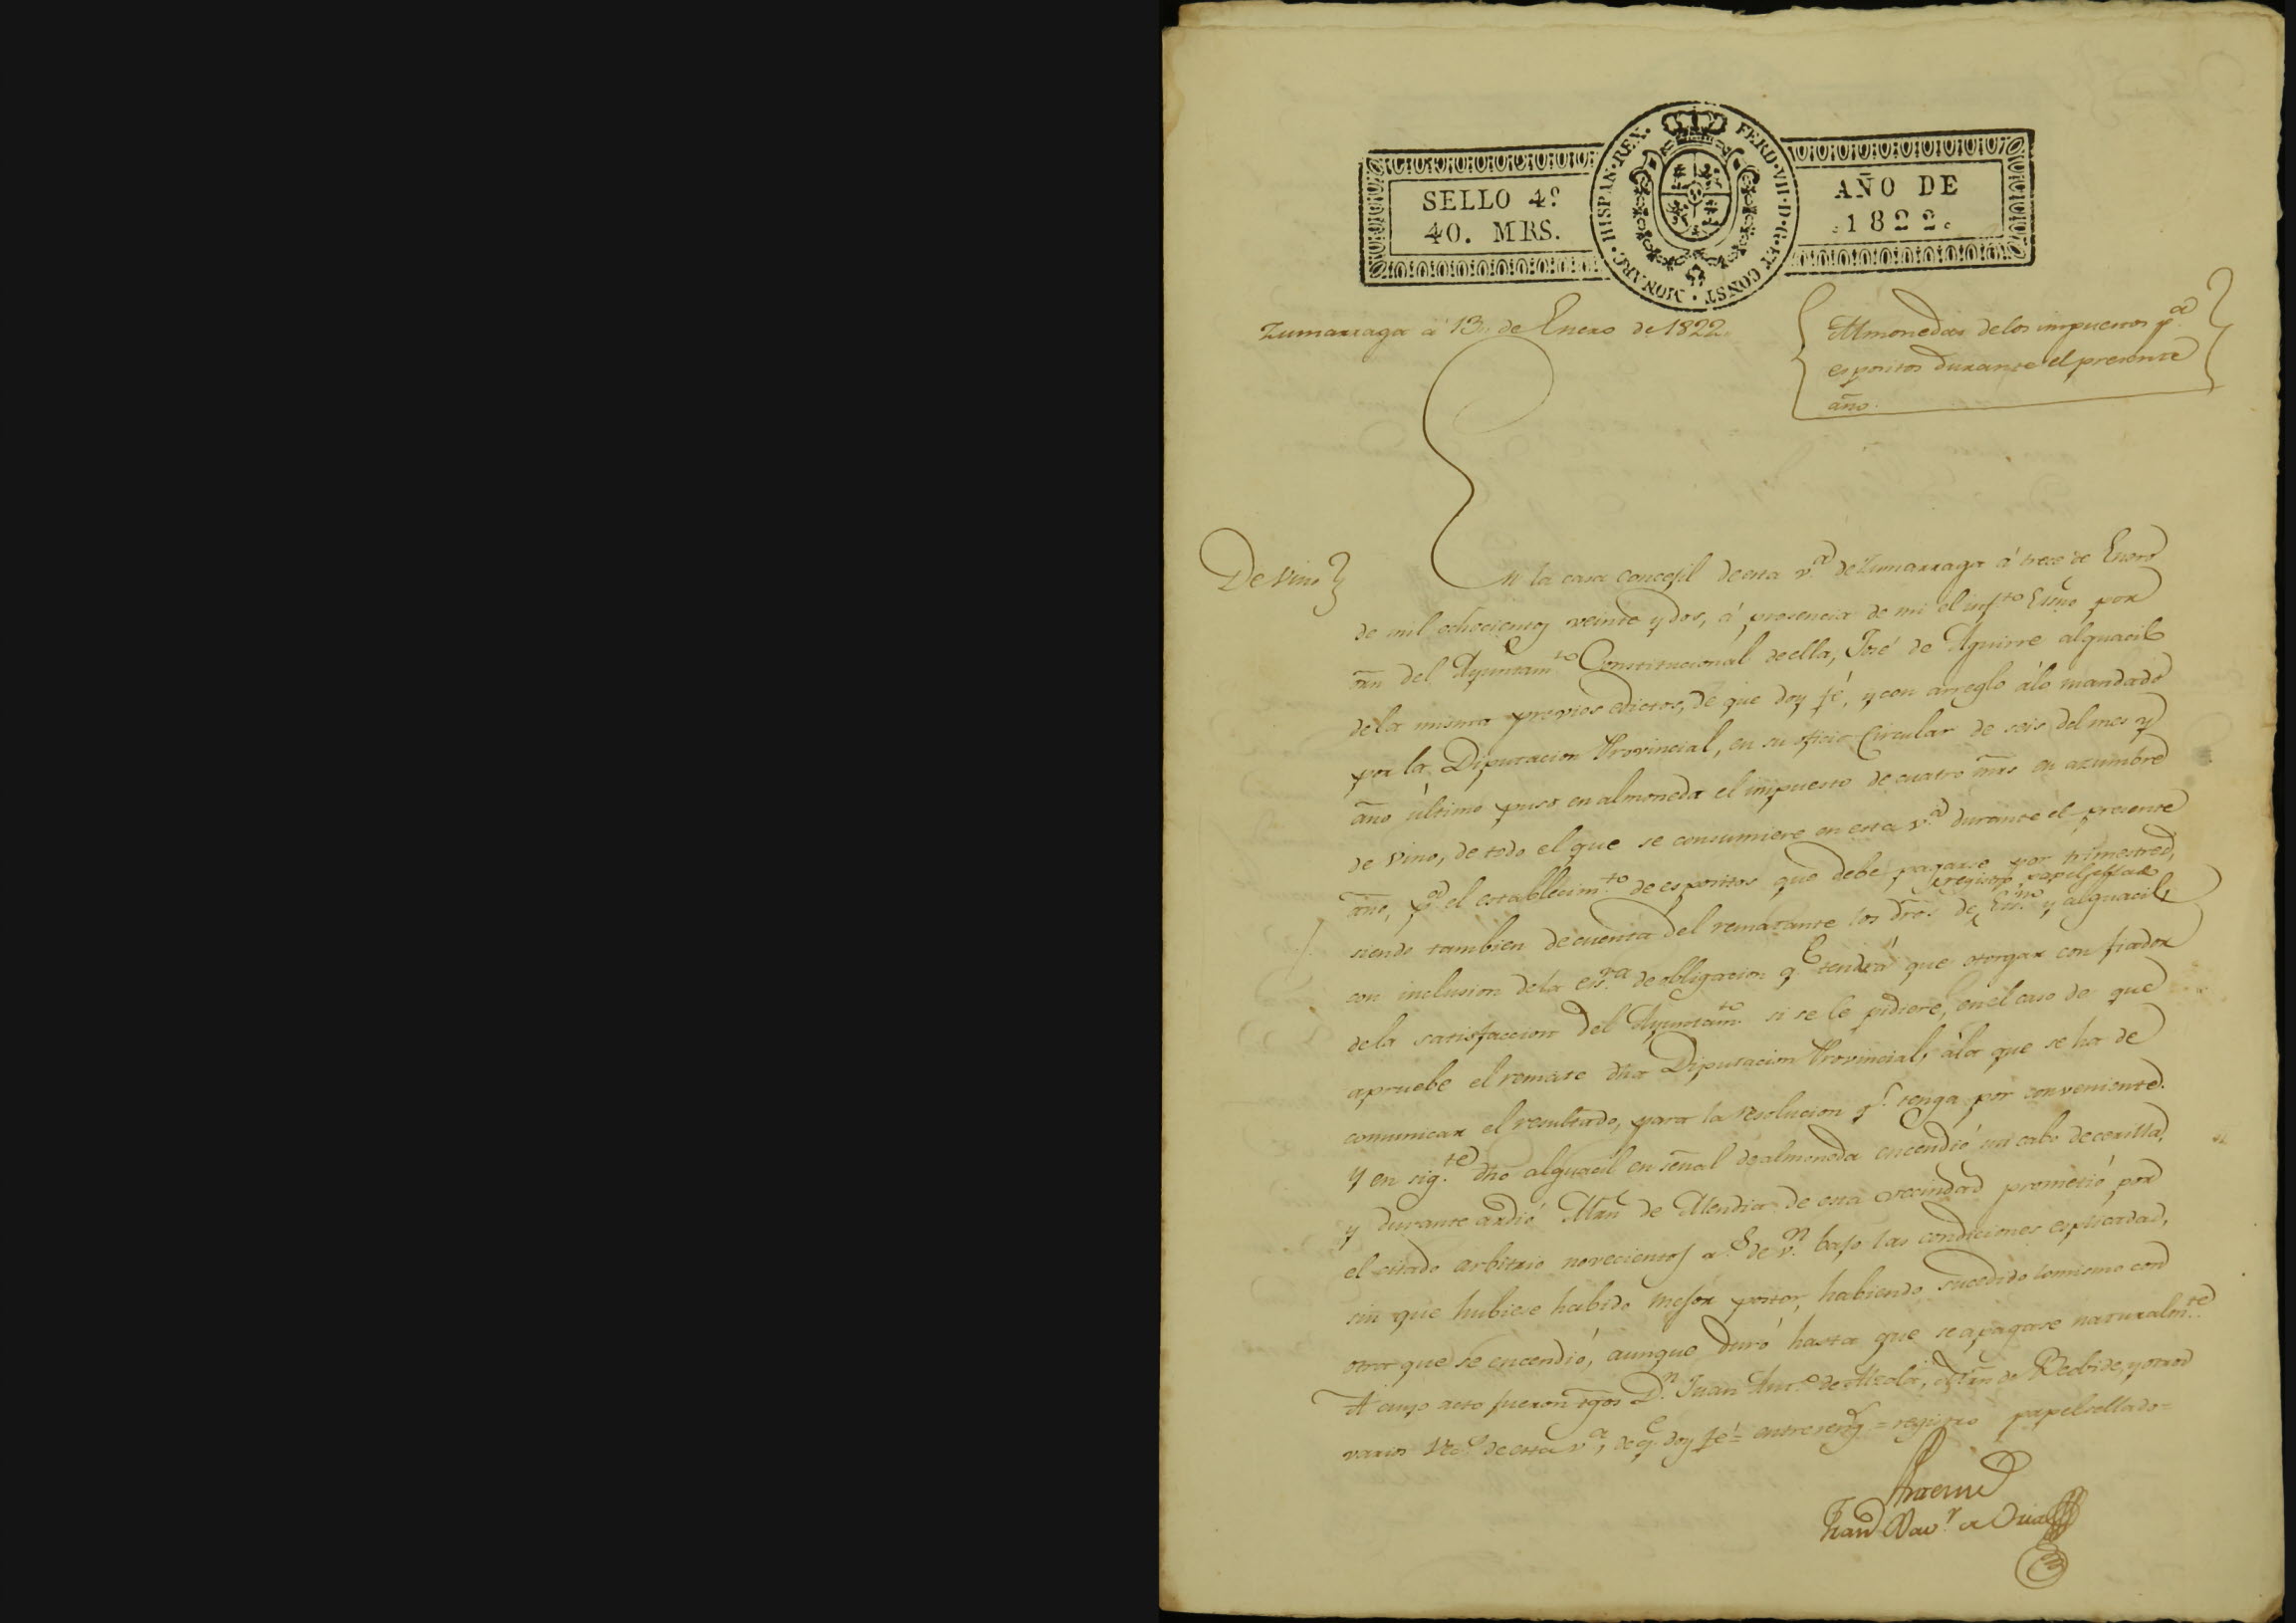 SELLO 4º
40. MRS.
HISPAN·REX. FERD·VII·D·G·ET CONST·MONARC·
AÑO DE
1822.
Zumarraga á 13,, de Enero de 1822.
Almonedas de los impuestos p.ª
espositos durante el presente
año.
De vino
En la casa concejil de esta v.ª de Zumarraga á trece de Enero
de mil ochocientos veinte y dos, á presencia de mi el inf.to Esño por
mn del Ayuntam.to Constitucional de ella, José de Aguirre alguacil
de la misma previos edictos, de que doy fé, y con arreglo álo mandado
por la Diputacion Provincial, en su oficio Circular de seis del mes y
año último puso en almoneda el impuesto de cuatro mrs en azumbre
de vino, de todo el que se consumiere en esta v.ª durante el presente
año, p.ª el establecim.to de espositos que debe pagarse por trimestres,
registro papel sellado
siendo tambien de cuenta del rematante los dros de Esño y alguacil,
con inclusion de la es.ra de obligacion q.e tendrá que otorgar con fiador
de la satisfaccion del Ayuntam.to si se le pidiere, en el caso de que
apruebe el remate dha Diputacion Provincial, á la que se ha de
comunicar el resultado, para la resolucion q.e tenga por conveniente.
Y en sig.te dho alguacil en señal de almoneda encendió un cabo de cerilla,
y durante ardió Mrn de Mendia de esta vecindad prometió por
el citado arbitrio novecientos r.s de v.n bajo las condiciones esplicadas,
sin que hubiese habido mejor postor, habiendo sucedido lo mismo con
otra que se encendió, aunque duró hasta que se apagase naturalm.te
A cuyo acto fueron tgos D.n Juan Ant.o de Alzola, Mrn de Recbide, y otros
varios Vec.s de esta v.ª, de q.e doy fé = entrereng.s = registro papel sellado =
Ante mi